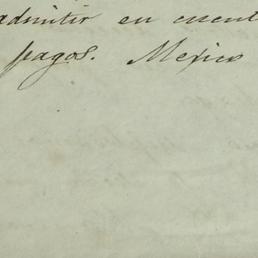 admitir en cuent
pagos. Mexico